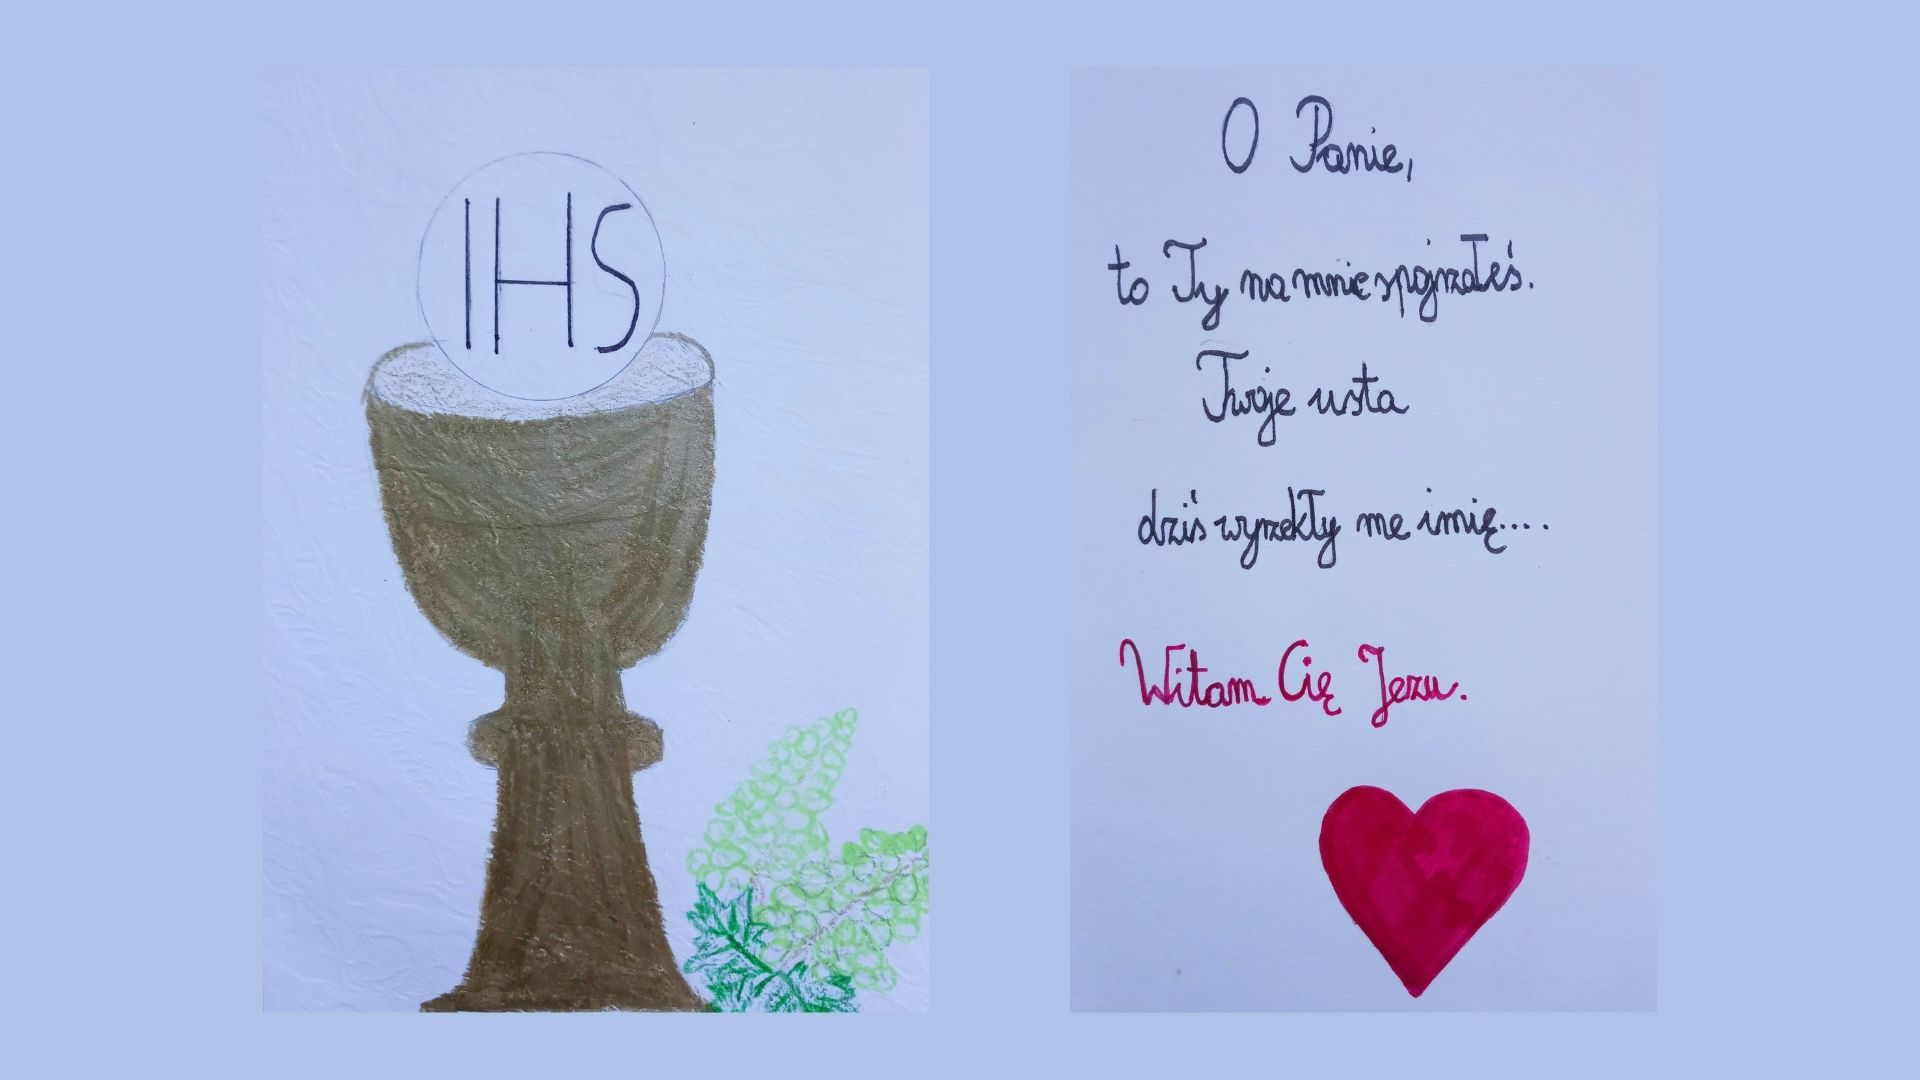 IHS
O Panie,
to Ty na mnie spojrzałeś.
Twoje usta
dziś wyrzekły me imię....
Witam Cię Jezu.